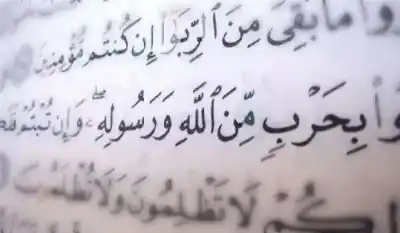 وا۟ مَا بَقِىَ مِنَ ٱلرِّبَوٰٓا۟ إِن كُنتُم مُّؤْمِنِينَ
وا۟ بِحَرْبٍ مِّنَ ٱللَّهِ وَرَسُولِهِۦ ۖ وَإِن تُبْتُمْ
لِكُمْ لَا تَظْلِمُونَ وَلَا تُظْلَمُونَ